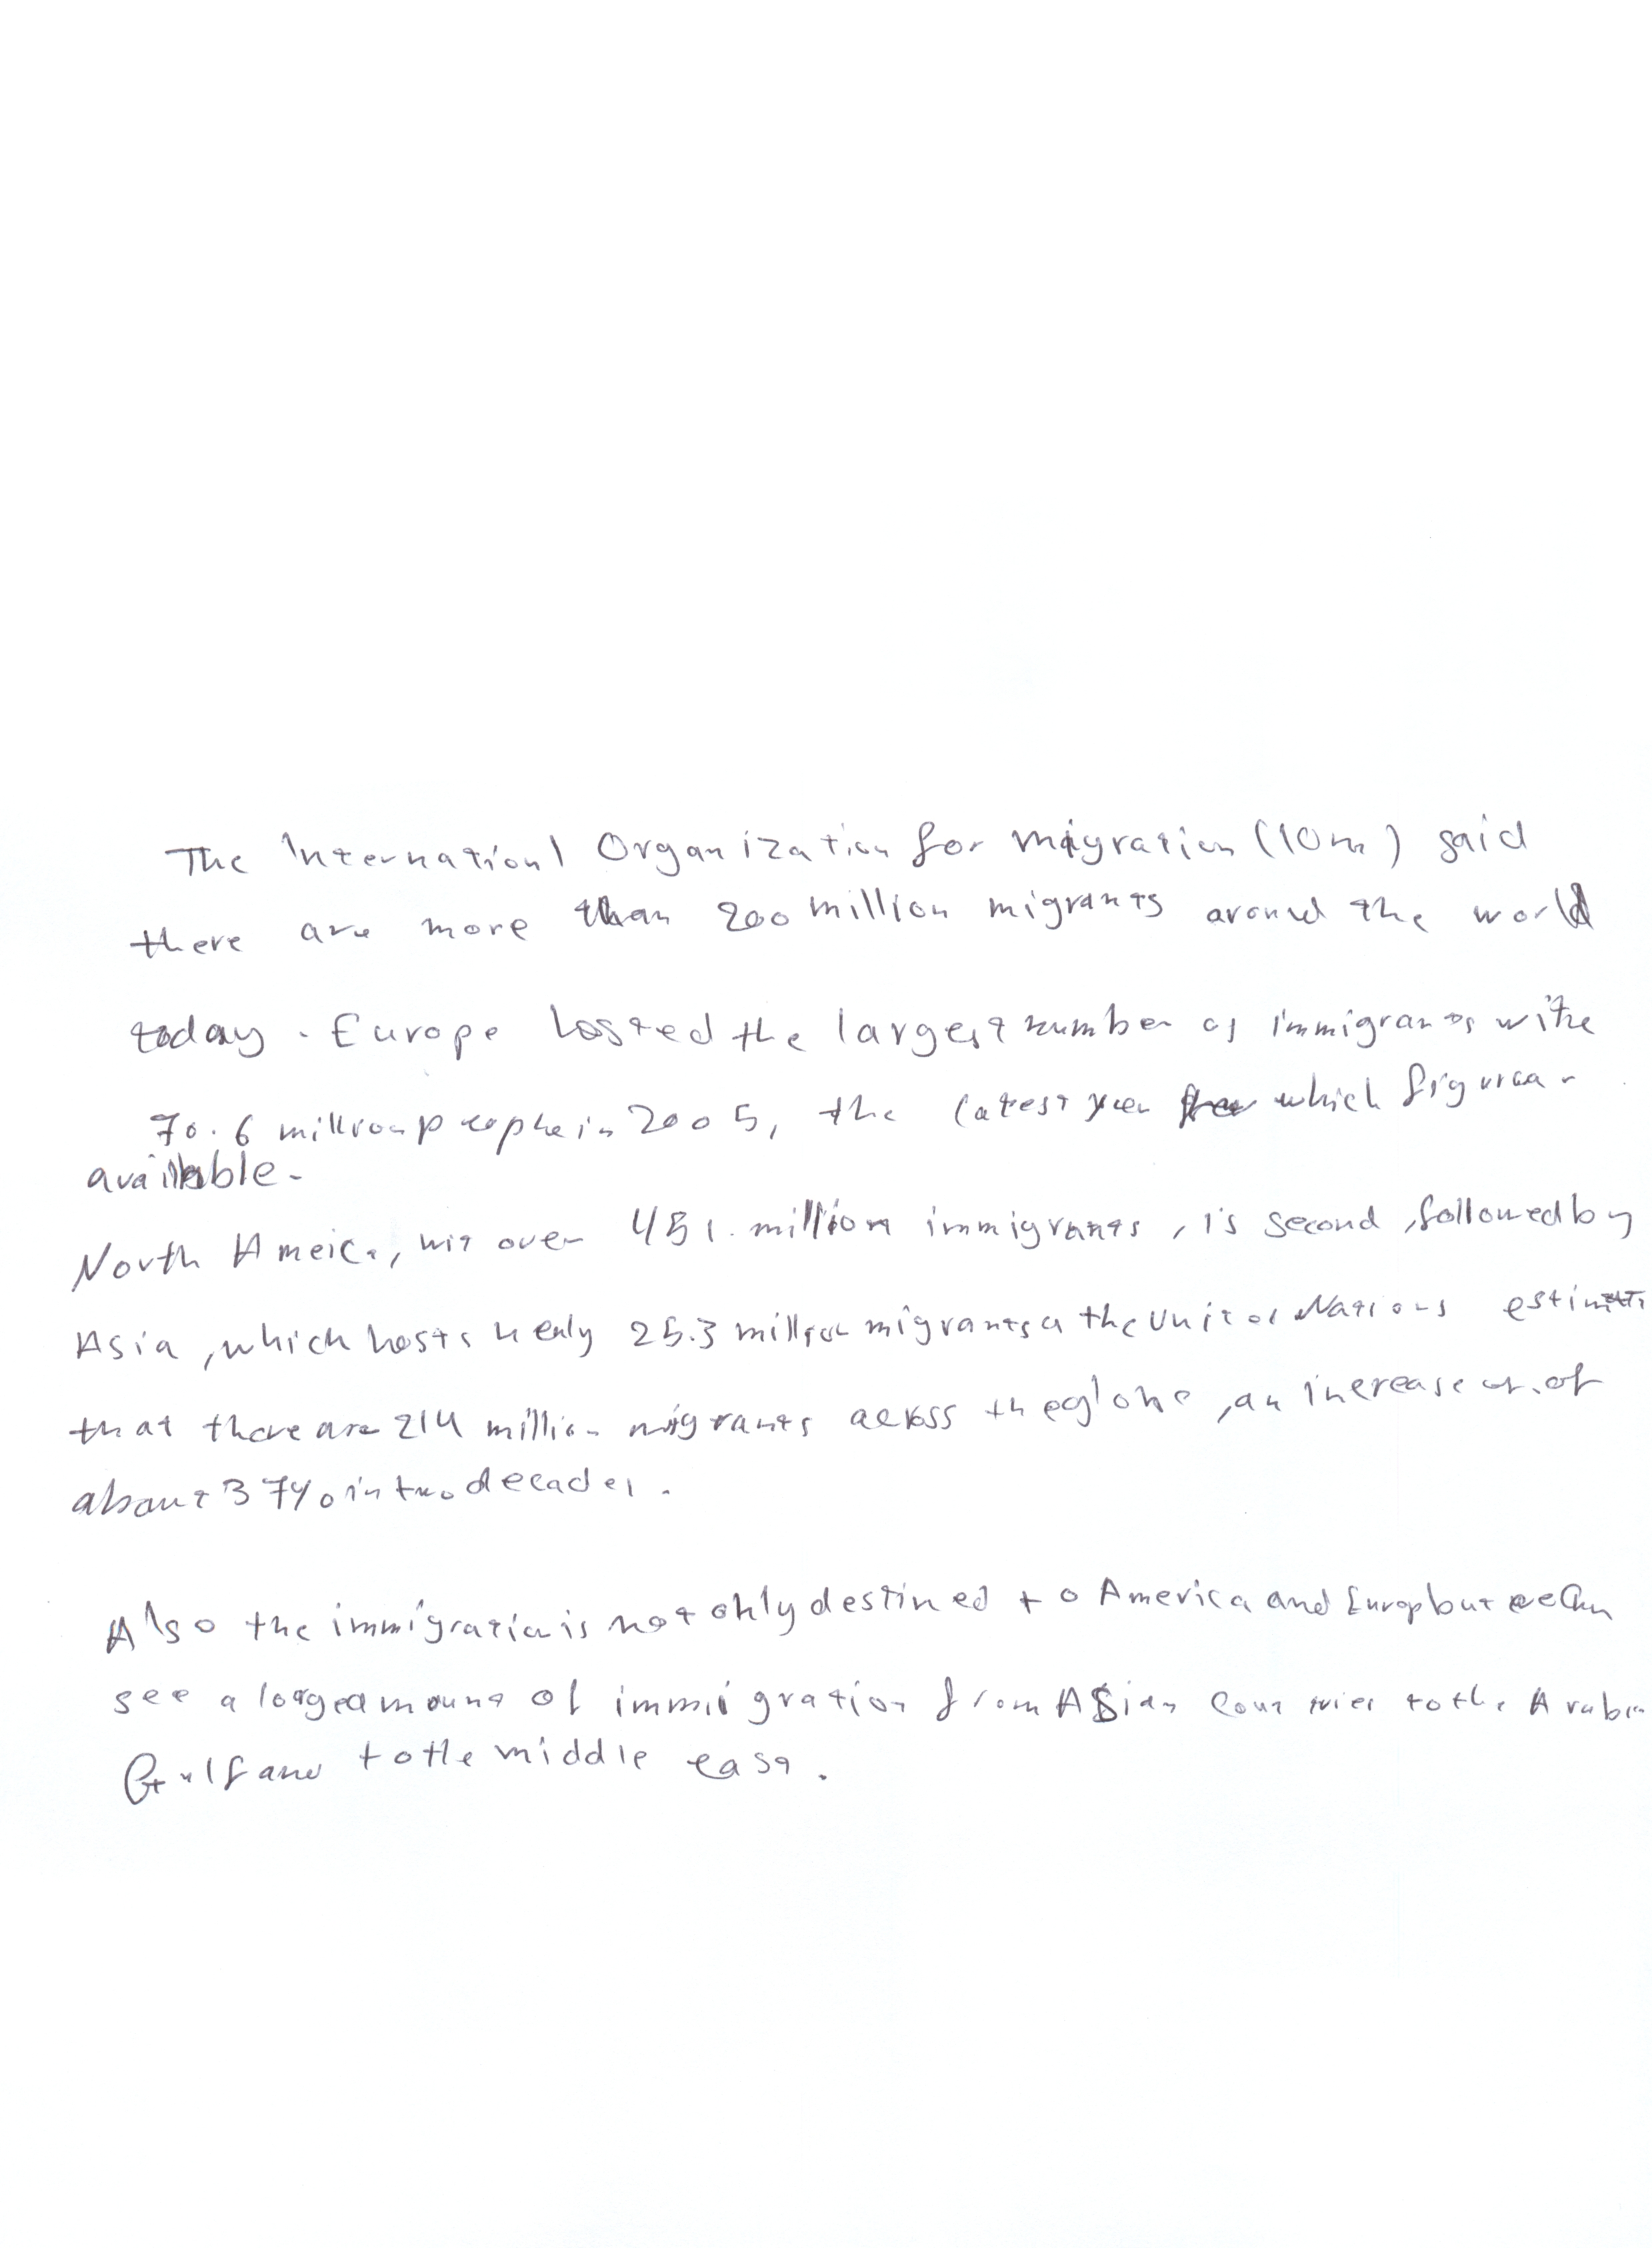 The Internationl Organization for migration (IOM) said
there are more than 200 million migrants around the world
today. Europe hosted the largest number of immigrants withe
70.6 million people in 2005, the latest year which figures
available.
North Ameica, wit over 451. million immigrants, is second, followed by
Asia, which hosts nenly 25.3 million migrants the United Nations
that there are 214 million migrants across the globe, an increase of
about 37% in two decades.
Also the immigration is not only destined to America and Europ but can
see a large amount of immigration from Asian countries to the Arabian
Gulf and to the middle east.